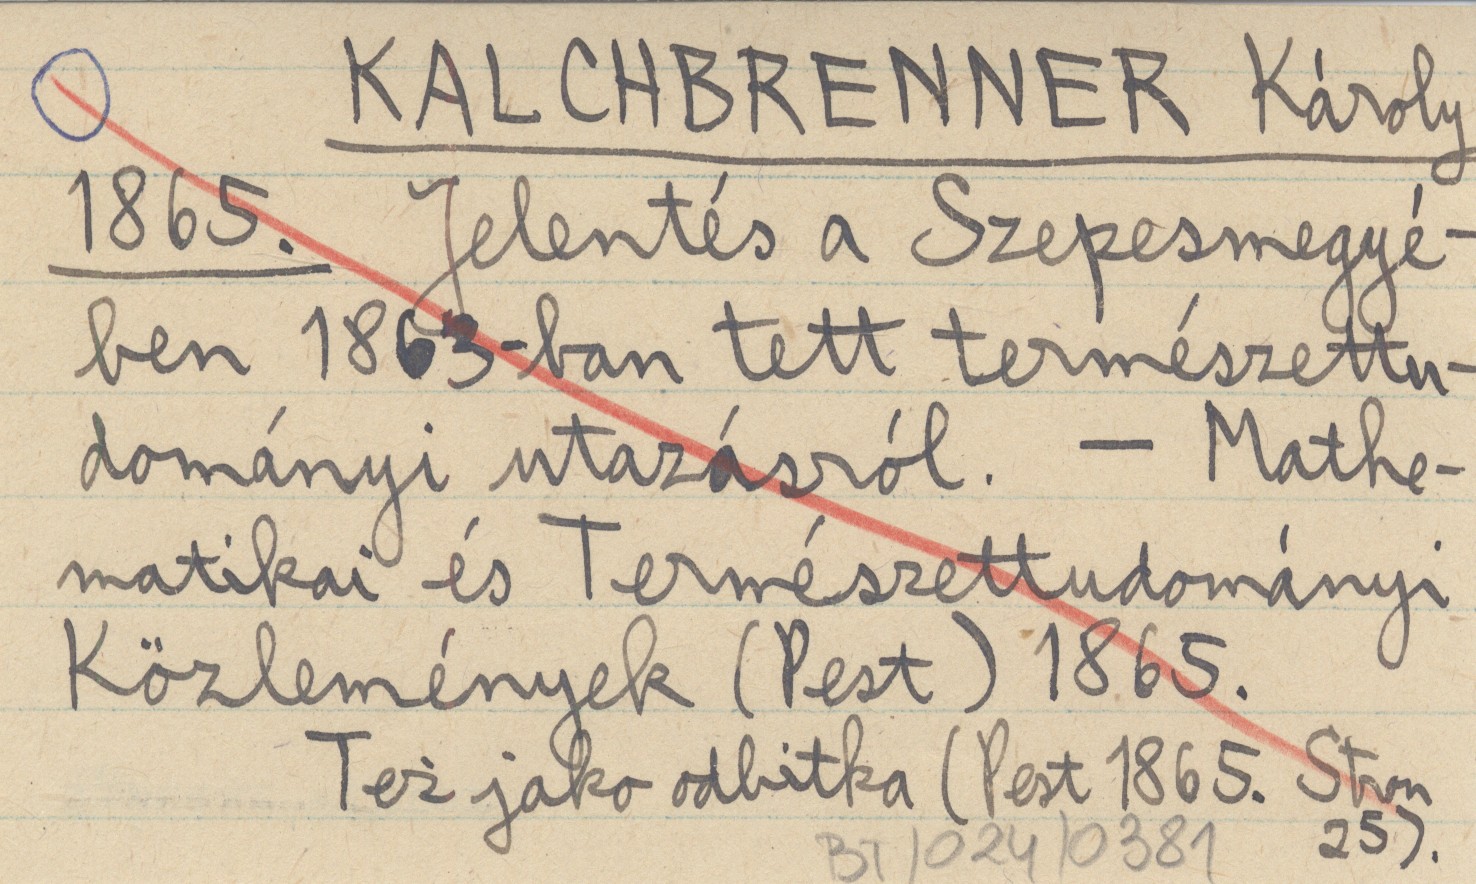 KALCHBRENNER Károly
1865. Jelentés a Szepesmegyé-
ben 1863-ban tett természettu-
dományi utazásról. — Mathe-
matikai és Természettudományi
Közlemények (Pest) 1865.
Też jako odbitka (Pest 1865. Stron
25).
BT/024/0381